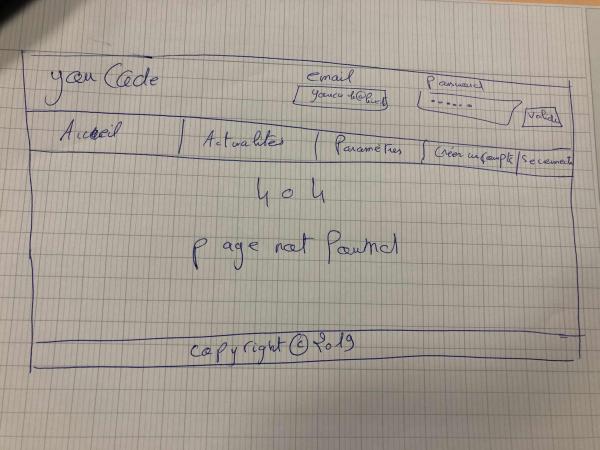 youCode
email
Password
......
Valider
Accueil
Actualités
Paramètres
Créer un Compte
404
page not found
copyright © 2019